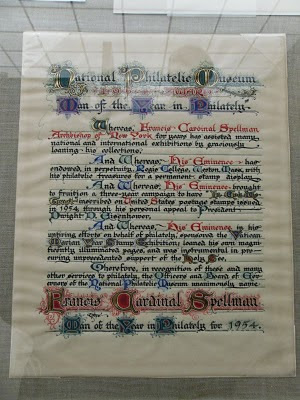 National Philatelic Museum
Man of the Year in Philately
Whereas, Francis Cardinal Spellman
Archbishop of New York for years has assisted many
national and international exhibitions by graciously
loaning his collections,
And Whereas, His Eminence has
endowed, in perpetuity, Regis College, Weston, Mass, with
his philatelic treasures for a permanent display,
And Whereas, His Eminence, brought
to fruition a three-year campaign to have In God We
Trust inscribed on United States postage stamps issued
in 1954 through his personal appeal to President
Dwight D. Eisenhower,
And Whereas, His Eminence, in his
untiring efforts on behalf of philately, sponsored the Vatican
Marian Year Stamp Exhibition, loaned his own magni
ficently illuminated pages, and was instrumental in procuring
unprecedented support of the Holy See,
Therefore, in recognition of these and many
other services to philately, the Officers and Board of Governors
of the National Philatelic Museum unanimously name
Francis Cardinal Spellman
Man of the Year in Philately for 1954.